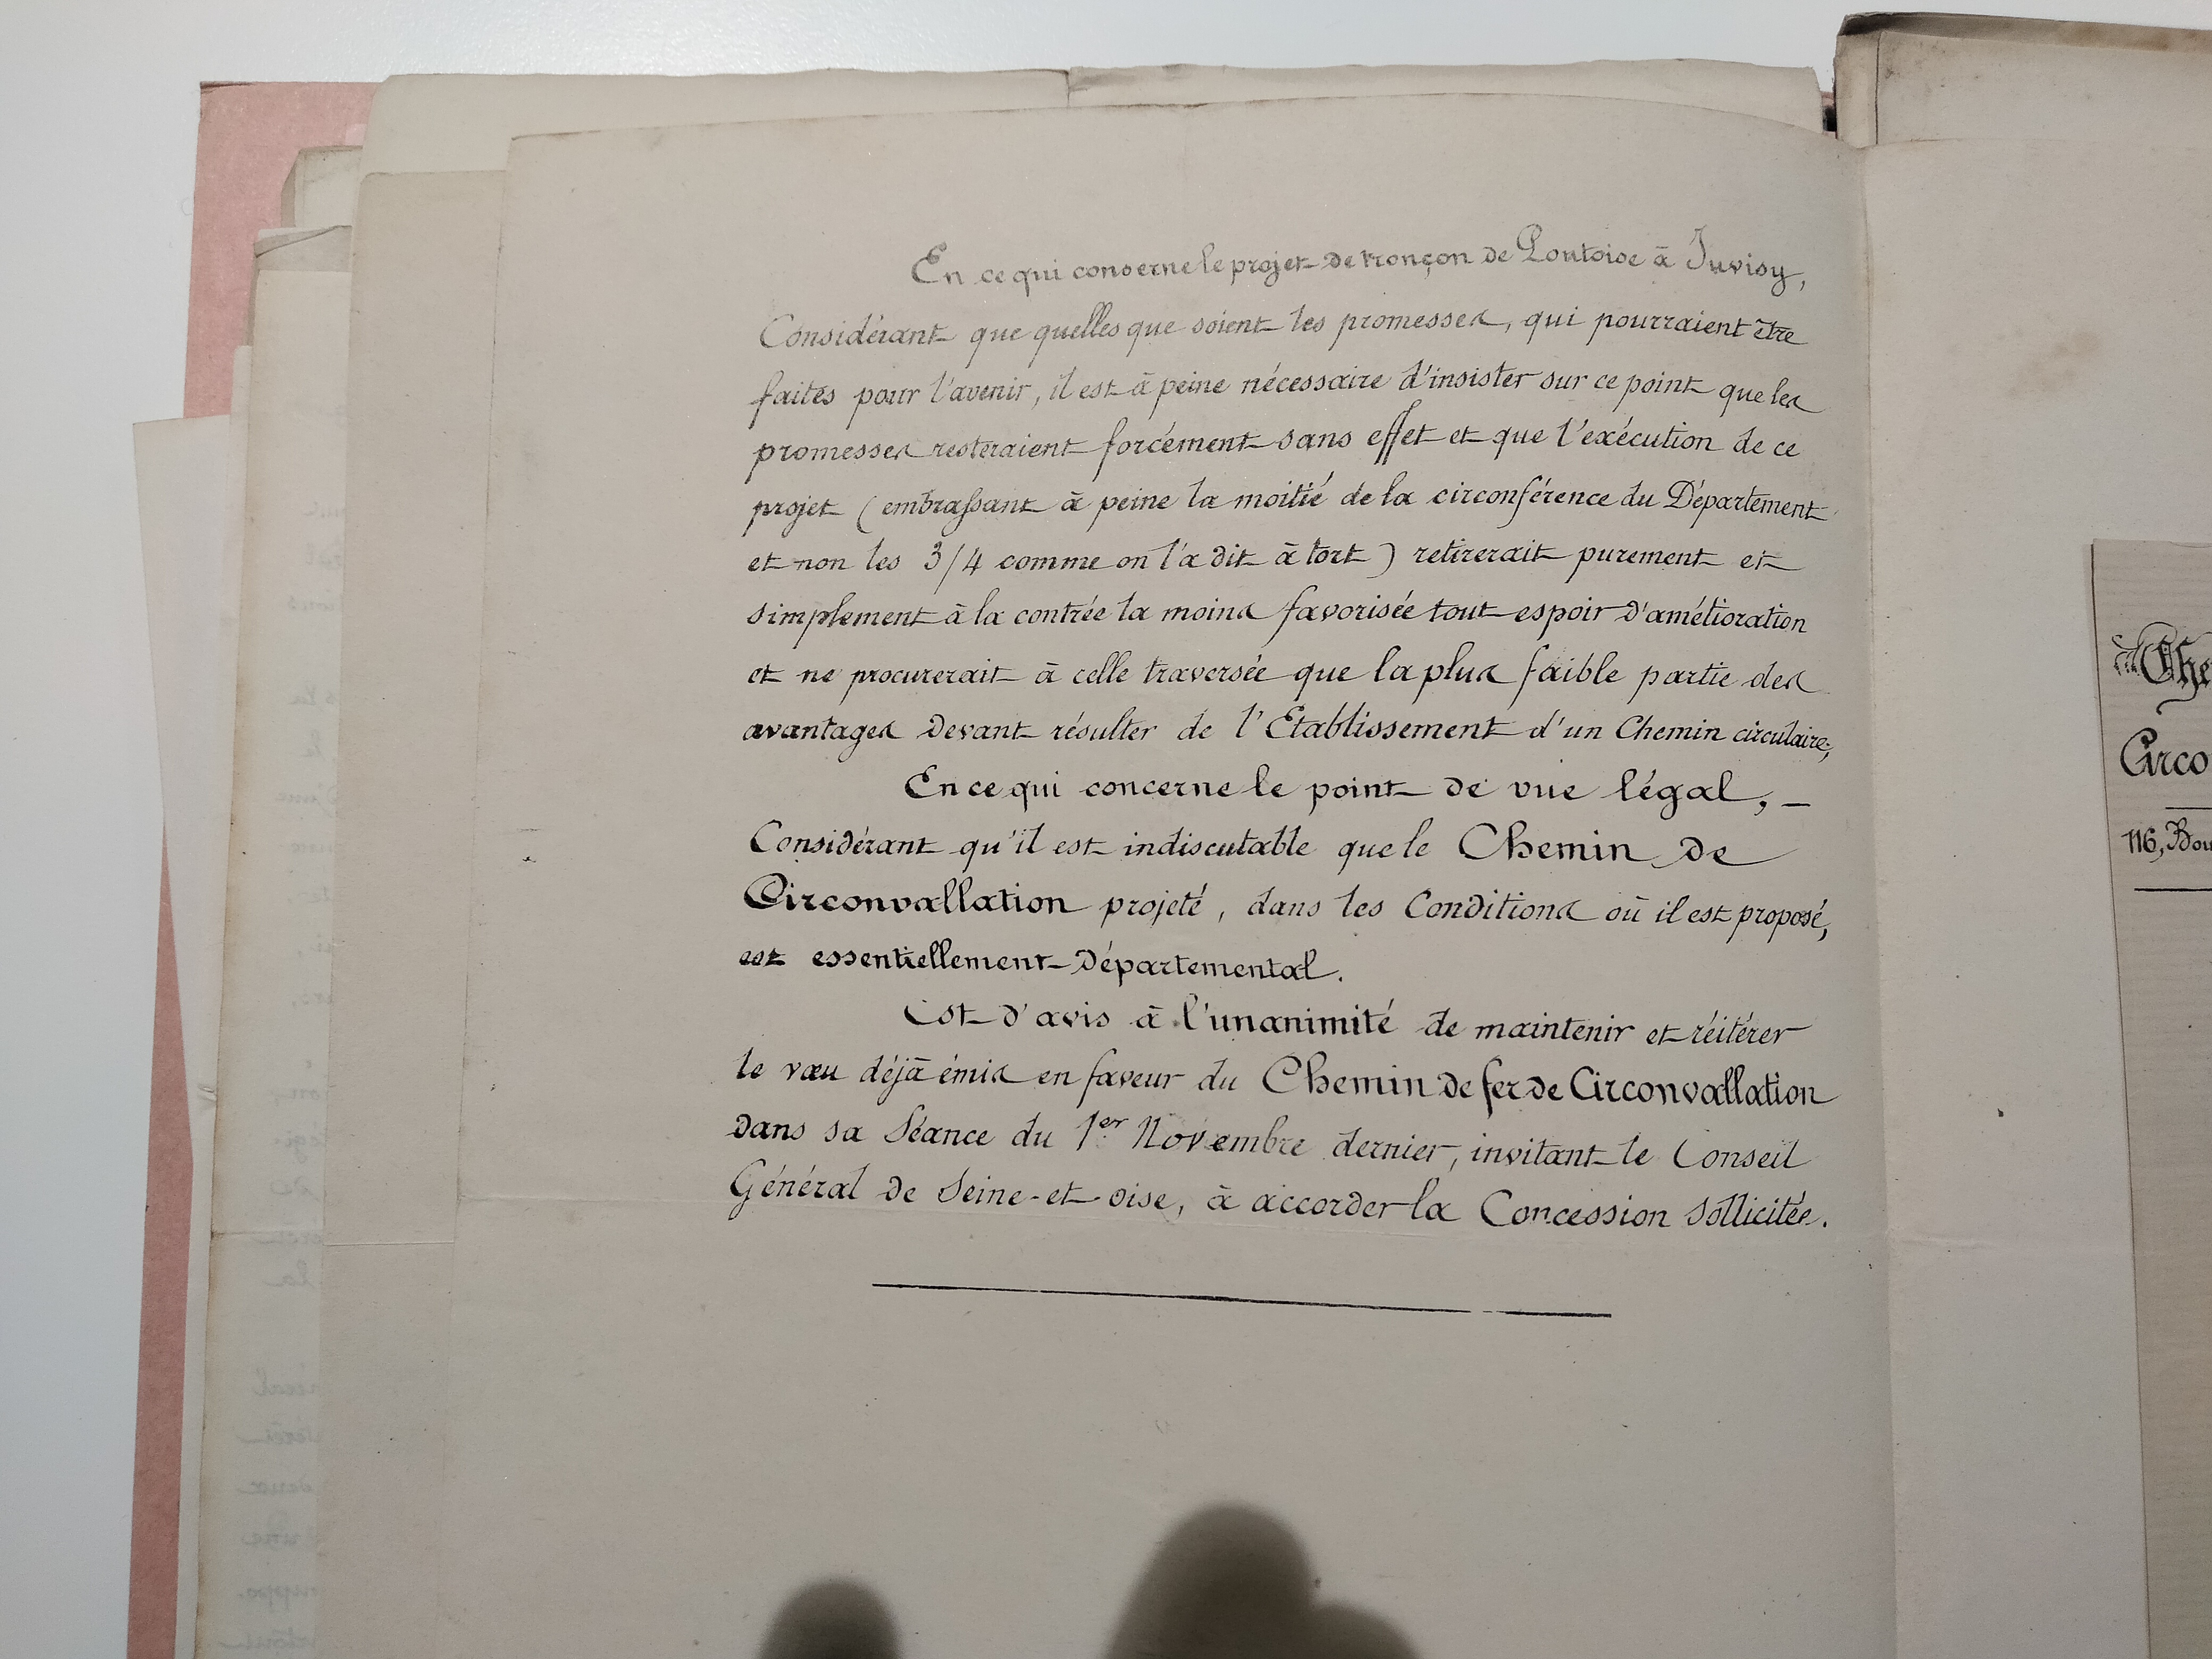 En ce qui concerne le projet de tronçon de Pontoise à Juvisy,
Considérant que quelles que soient les promesses, qui pourraient être
faites pour l'avenir, il est à peine nécessaire d'insister sur ce point que les
promesses resteraient forcément sans effet et que l'exécution de ce
projet (embrassant à peine la moitié de la circonférence du Département
et non les 3/4 comme on l'a dit à tort) retirerait purement et
simplement à la contrée la moins favorisée tout espoir d'amélioration
et ne procurerait à celle traversée que la plus faible partie des
avantages devant résulter de l'Etablissement d'un Chemin circulaire;
En ce qui concerne le point de vue légal, _
Considérant qu'il est indiscutable que le Chemin de
Circonvallation projeté, dans les Conditions où il est proposé,
est essentiellement Départemental.
Est d'avis à l'unanimité de maintenir et réitérer
le vœu déjà émis en faveur du Chemin de fer de Circonvallation
dans sa Séance du 1er Novembre dernier, invitant le Conseil
Général de Seine-et-oise, à accorder la Concession sollicitée.
Che
Circo
116, Bou